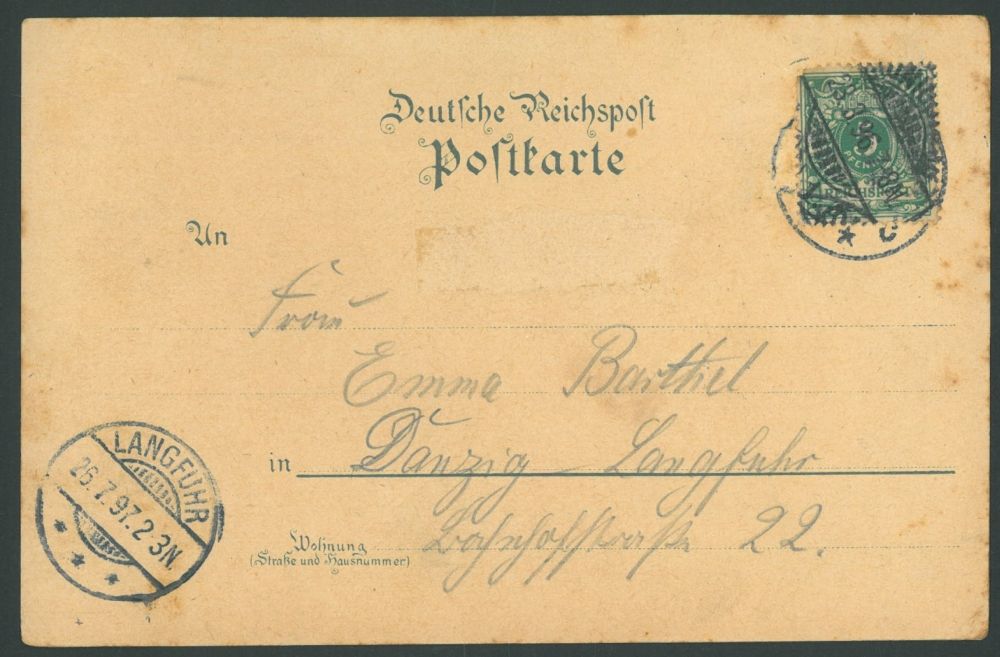 Deutsche Reichspost
Postkarte
5
An
Frau
Emma Barthel
in Danzig Langfuhr
Wohnung
(Straße und Hausnummer)
Bahnhofstraße 22.
LANGFUHR
26.7.97.2-3N.
* * *
* c